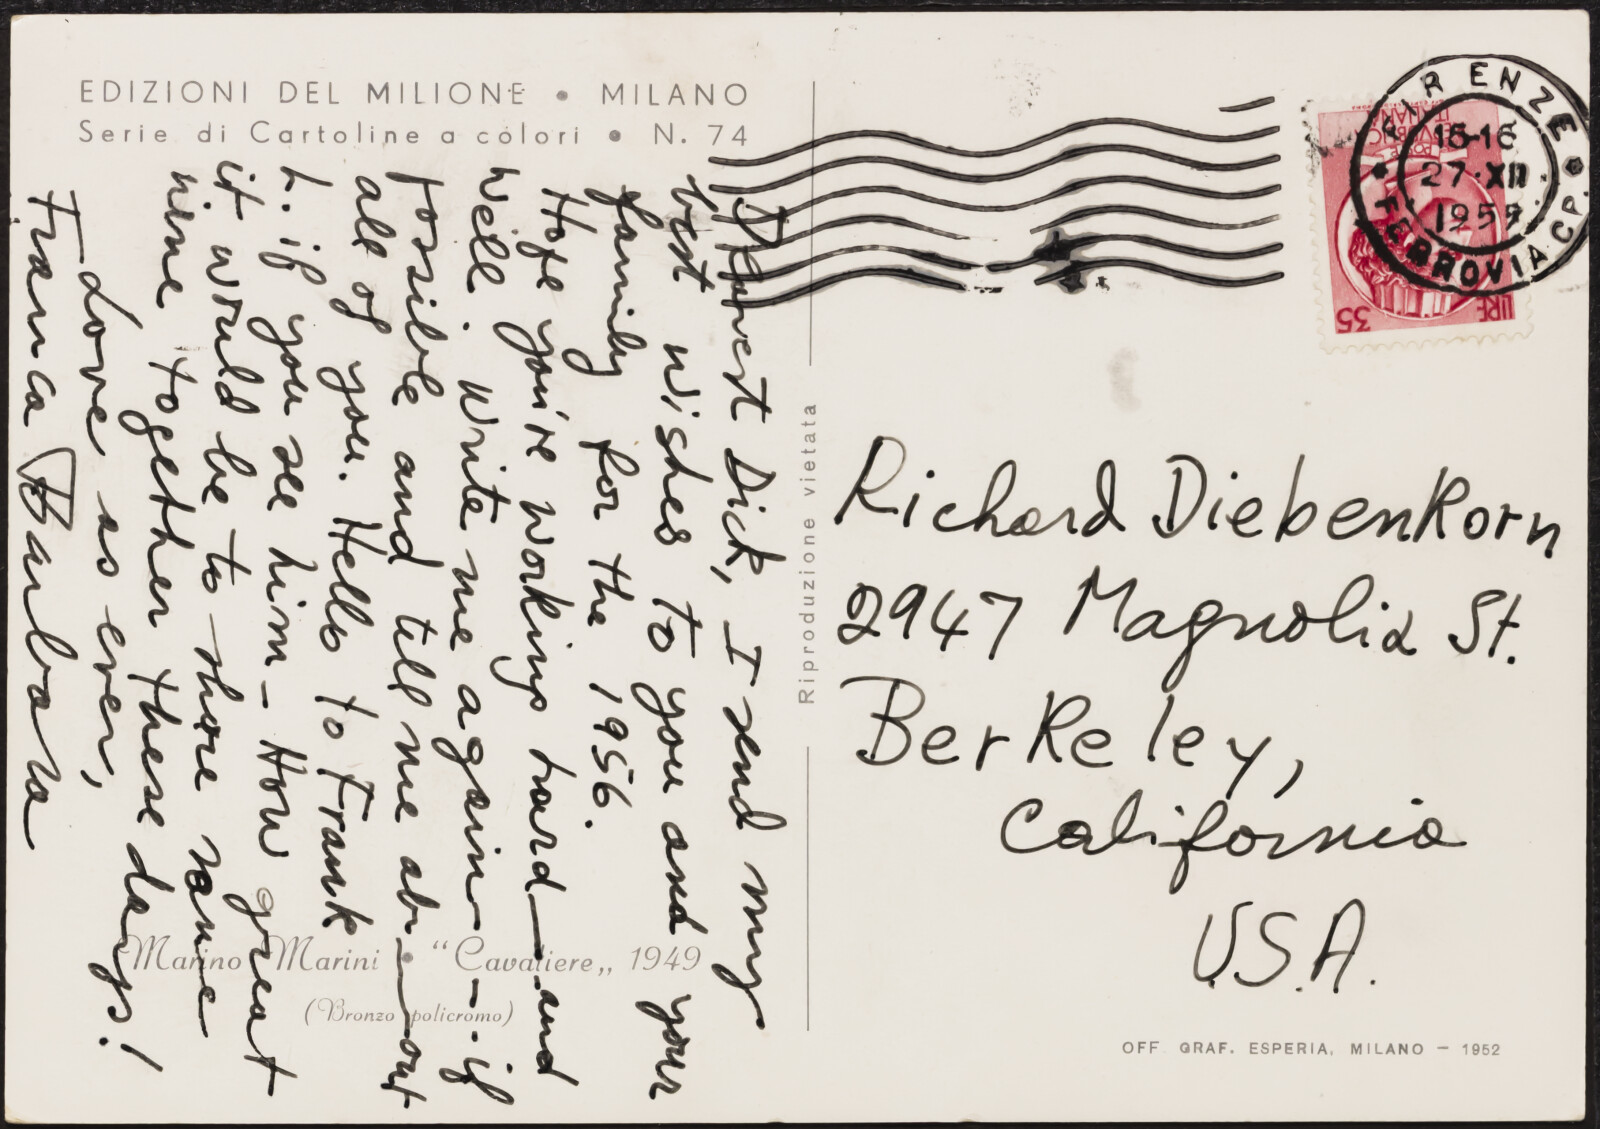 EDIZIONI DEL MILIONE • MILANO
Serie di Cartoline a colori • N. 74
Dearest Dick, I send my
best wishes to you and your
family for the 1956.
Hope you're working hard and
well. Write me again - if
possible and tell me about
all of you. Hello to Frank
L. if you see him - How great
it would be to share some
wine together these days!
Love as ever,
Franca Barbara
Marino Marini • "Cavaliere„ 1949
(Bronzo policromo)
Riproduzione vietata
FIRENZE
FERROVIA CP.
15-16
27·XII
1955
REPVBBLICA
ITALIANA
LIRE 35
Richard Diebenkorn
2947 Magnolia St.
Berkeley,
California
U.S.A.
OFF. GRAF. ESPERIA, MILANO – 1952